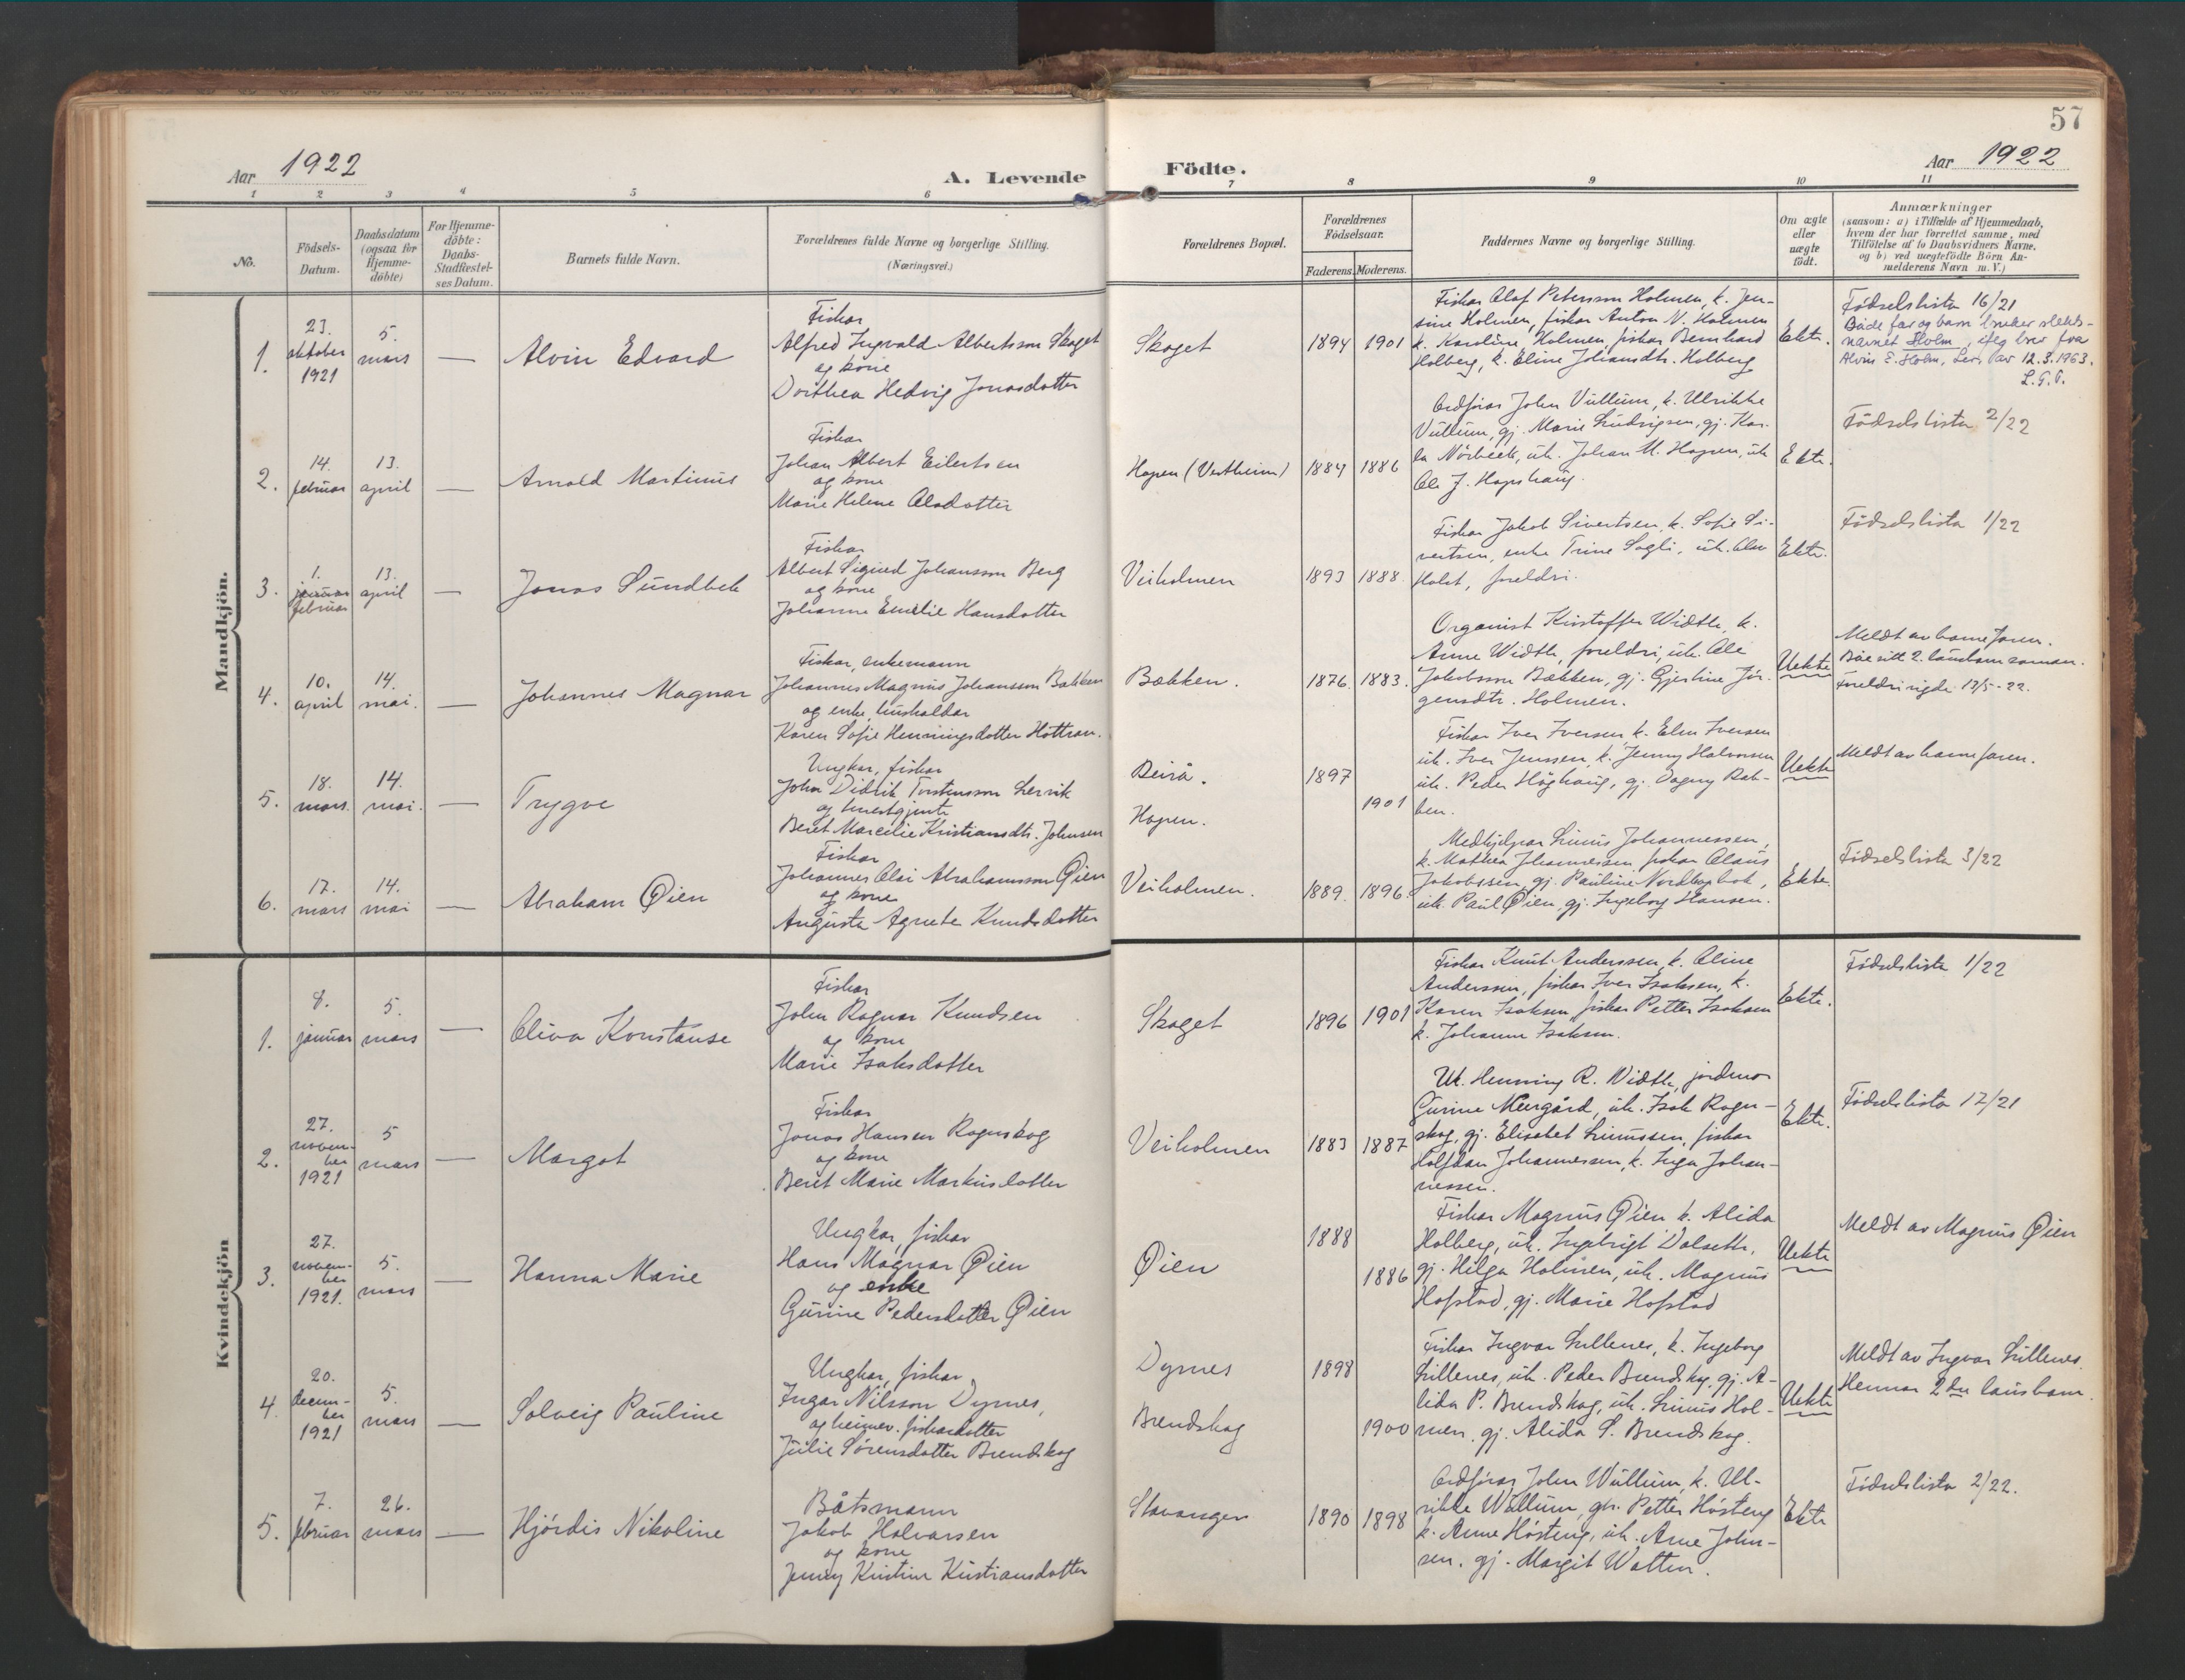 57
Aar 1922
A. Levende
Födte.
Aar 1922
1 2 3 4 5 6 7 8 9 10 11
No.
Födsels-
Datum.
Daabsdatum
(ogsaa for
Hjemme-
döbte)
For Hjemme-
döbte:
Daabs-
Stadfæstel-
ses Datum.
Barnets fulde Navn.
Forældrenes fulde Navne og borgerlige Stilling.
(Næringsvei.)
Forældrenes Bopæl.
Forældrenes
Födselsaar.
Faderens. Moderens.
Faddernes Navne og borgerlige Stilling.
Om ægte
eller
uægte
födt.
Anmærkninger
(saasom: a) i Tilfælde af Hjemmedaab,
hvem der har forrettet samme, med
Tilföielse af to Daabsvidners Navne.
og b) ved uægtefödte Börn An-
melderens Navn m. V.)
Mandkjön.
1.
23.
oktober
1921
5.
mars
—
Alvin Edvard
Fiskar
Alfred Ingvald Albertsson Skaget
og kone
Dorthea Hedvig Jonasdotter
Skaget
1894 1901
Fiskar Olaf Petersson Holmen, k. Jen-
sine Holmen, fiskar Anton N. Holmen
k. Karoline Holmen, fiskar Bernhard
Holberg, k. Eline Johansdtr. Holberg
Ekte.
Fødselslista 16/21
Både far og barn bruker slekts-
navnet Holm, ifølg brev fra
Alvin E. Holm, Lev. av 12.3.1963.
L.G.T.
2.
14.
februar
13.
april
—
Arnold Martinus
Fiskar
Johan Albert Eilertsen
og kone
Marie Helene Olsdotter
Hopen (Vertheim)
1884 1886
Ordførar John Vullum, k. Ulrikke
Vullum, gj. Marie Ludvigsen, gj. Kar-
la Nørbeck, uk. Johan M. Hopen, uk
Ole J. Hopshaug.
Ekte.
Fødselslista 2/22
3.
1.
januar
februar
13.
april
—
Jonas Sundbek
Fiskar
Albert Sigurd Johansson Berg
og kone
Johanne Emelie Hansdotter
Veiholmen
1893 1888.
Fiskar Jakob Sivertsen, k. Sofie Si-
vertsen, enke Trine Sagli, uk. Olav
Holst, foreldri.
Ekte.
Fødselslista 1/22
4.
10.
april
14.
mai.
—
Johannes Magnar
Fiskar, enkemann
Johannes Magnus Johansson Bakken
og enke, hushaldar
Karen Sofie Henningsdotter Hottran.
Bekken.
1876. 1883.
Organist Kristoffer Width, k.
Anne Width, foreldri, uk. Ole
Jakobsson Bekken, gj. Gjertine Jør-
gensdtr. Holmen.
Uekte
Meldt av barnefaren.
Båe sitt 2. lausbarn saman.
Foreldri vigde 13/5-22.
5.
18.
mars.
14.
mai.
—
Trygve
Ungkar, fiskar
John Didrik Torstensson Lervik
og tenestgjente
Beret Marcelie Kristiansdtr. Johnsen
Beirå.
Hopen.
1897
1901
Fiskar Iver Iversen k. Elen Iversen
uk. Iver Jenssen, k. Jenny Halvorsen
uk. Peder Høghaug, gj. Dagny Rab-
ben.
Uekte
Meldt av barnefaren.
6.
17.
mars
14.
mai
—
Abraham Øien
Fiskar
Johannes Olai Abrahamsson Øien
og kone
Augusta Agnete Knudsdotter
Veiholmen.
1889. 1896.
Medhjelpar Linus Johannessen,
k. Mathea Johannessen, fiskar Olaus
Jakobssen, gj. Pauline Nordbopbak,
uk. Paul Øien, gj. Ingeborg Hansen.
Ekte.
Fødselslista 3/22
Kvindekjön
1.
8.
januar
5.
mars
—
Oliva Konstanse
Fiskar
John Ragnar Knudsen
og kone
Marie Isaksdotter
Skaget
1896 1901
Fiskar Knut Anderssen, k. Oline
Anderssen, fiskar Iver Isaksen, k.
Karen Isaksen, fiskar Petter Isaksen
k. Johanne Isaksen.
Ekte.
Fødselslista 1/22
2.
27.
novem-
ber
1921
5
mars
—
Margot
Fiskar
Jonas Hansen Rognskog
og kone
Beret Marie Markusdotter
Veiholmen
1883 1887
Uk. Henning R. Width, jordmor
Gurine Neergård, uk. Isak Rogn-
skog, gj. Elisabet Linussen, fiskar
Halfdan Johannessen, k. Inga Johan-
nessen.
Ekte.
Fødselslista 17/21
3.
27.
novem-
ber
1921.
5.
mars
—
Hanna Marie
Ungkar, fiskar
Hans Magnar Øien
og enke
Gurine Pedersdotter Øien
Øien
1888
1886
Fiskar Magnus Øien k. Alida
Holberg, uk. Ingebrigt Dalseth,
gj. Hilga Holmen, uk. Magnus
Hofstad, gj. Marie Hofstad
Uekte
Meldt av Magnus Øien
4.
20.
decem-
ber
1921
5.
mars
—
Solveig Pauline
Ungkar, fiskar
Ingar Nilsson Dyrnes,
og heimev. fiskardotter
Julie Sørensdotter Brendskog
Dyrnes
Brendskog
1898
1900
Fiskar Ingvar Lillenes, k. Ingeborg
Lillenes, uk. Peder Brendskog, gj. A-
lida P. Brendskog, uk. Linus Hol-
men, gj. Alida S. Brendskog.
Uekte
Meldt av Ingvar Lillenes.
Hennar 2dre lausbarn.
5.
7.
februar
26.
mars
—
Hjørdis Nikoline
Båtsmann
Jakob Halvarsen
og kone
Jenny Kristine Kristiansdotter
Stavanger
1890 1898
Ordførar John Wullum, k. Ul-
rikke Wullum, gbr. Petter Høsteng
k. Anne Høsteng, uk. Arne John-
sen, gj. Margit Watten.
Ekte
Fødselslista 2/22.